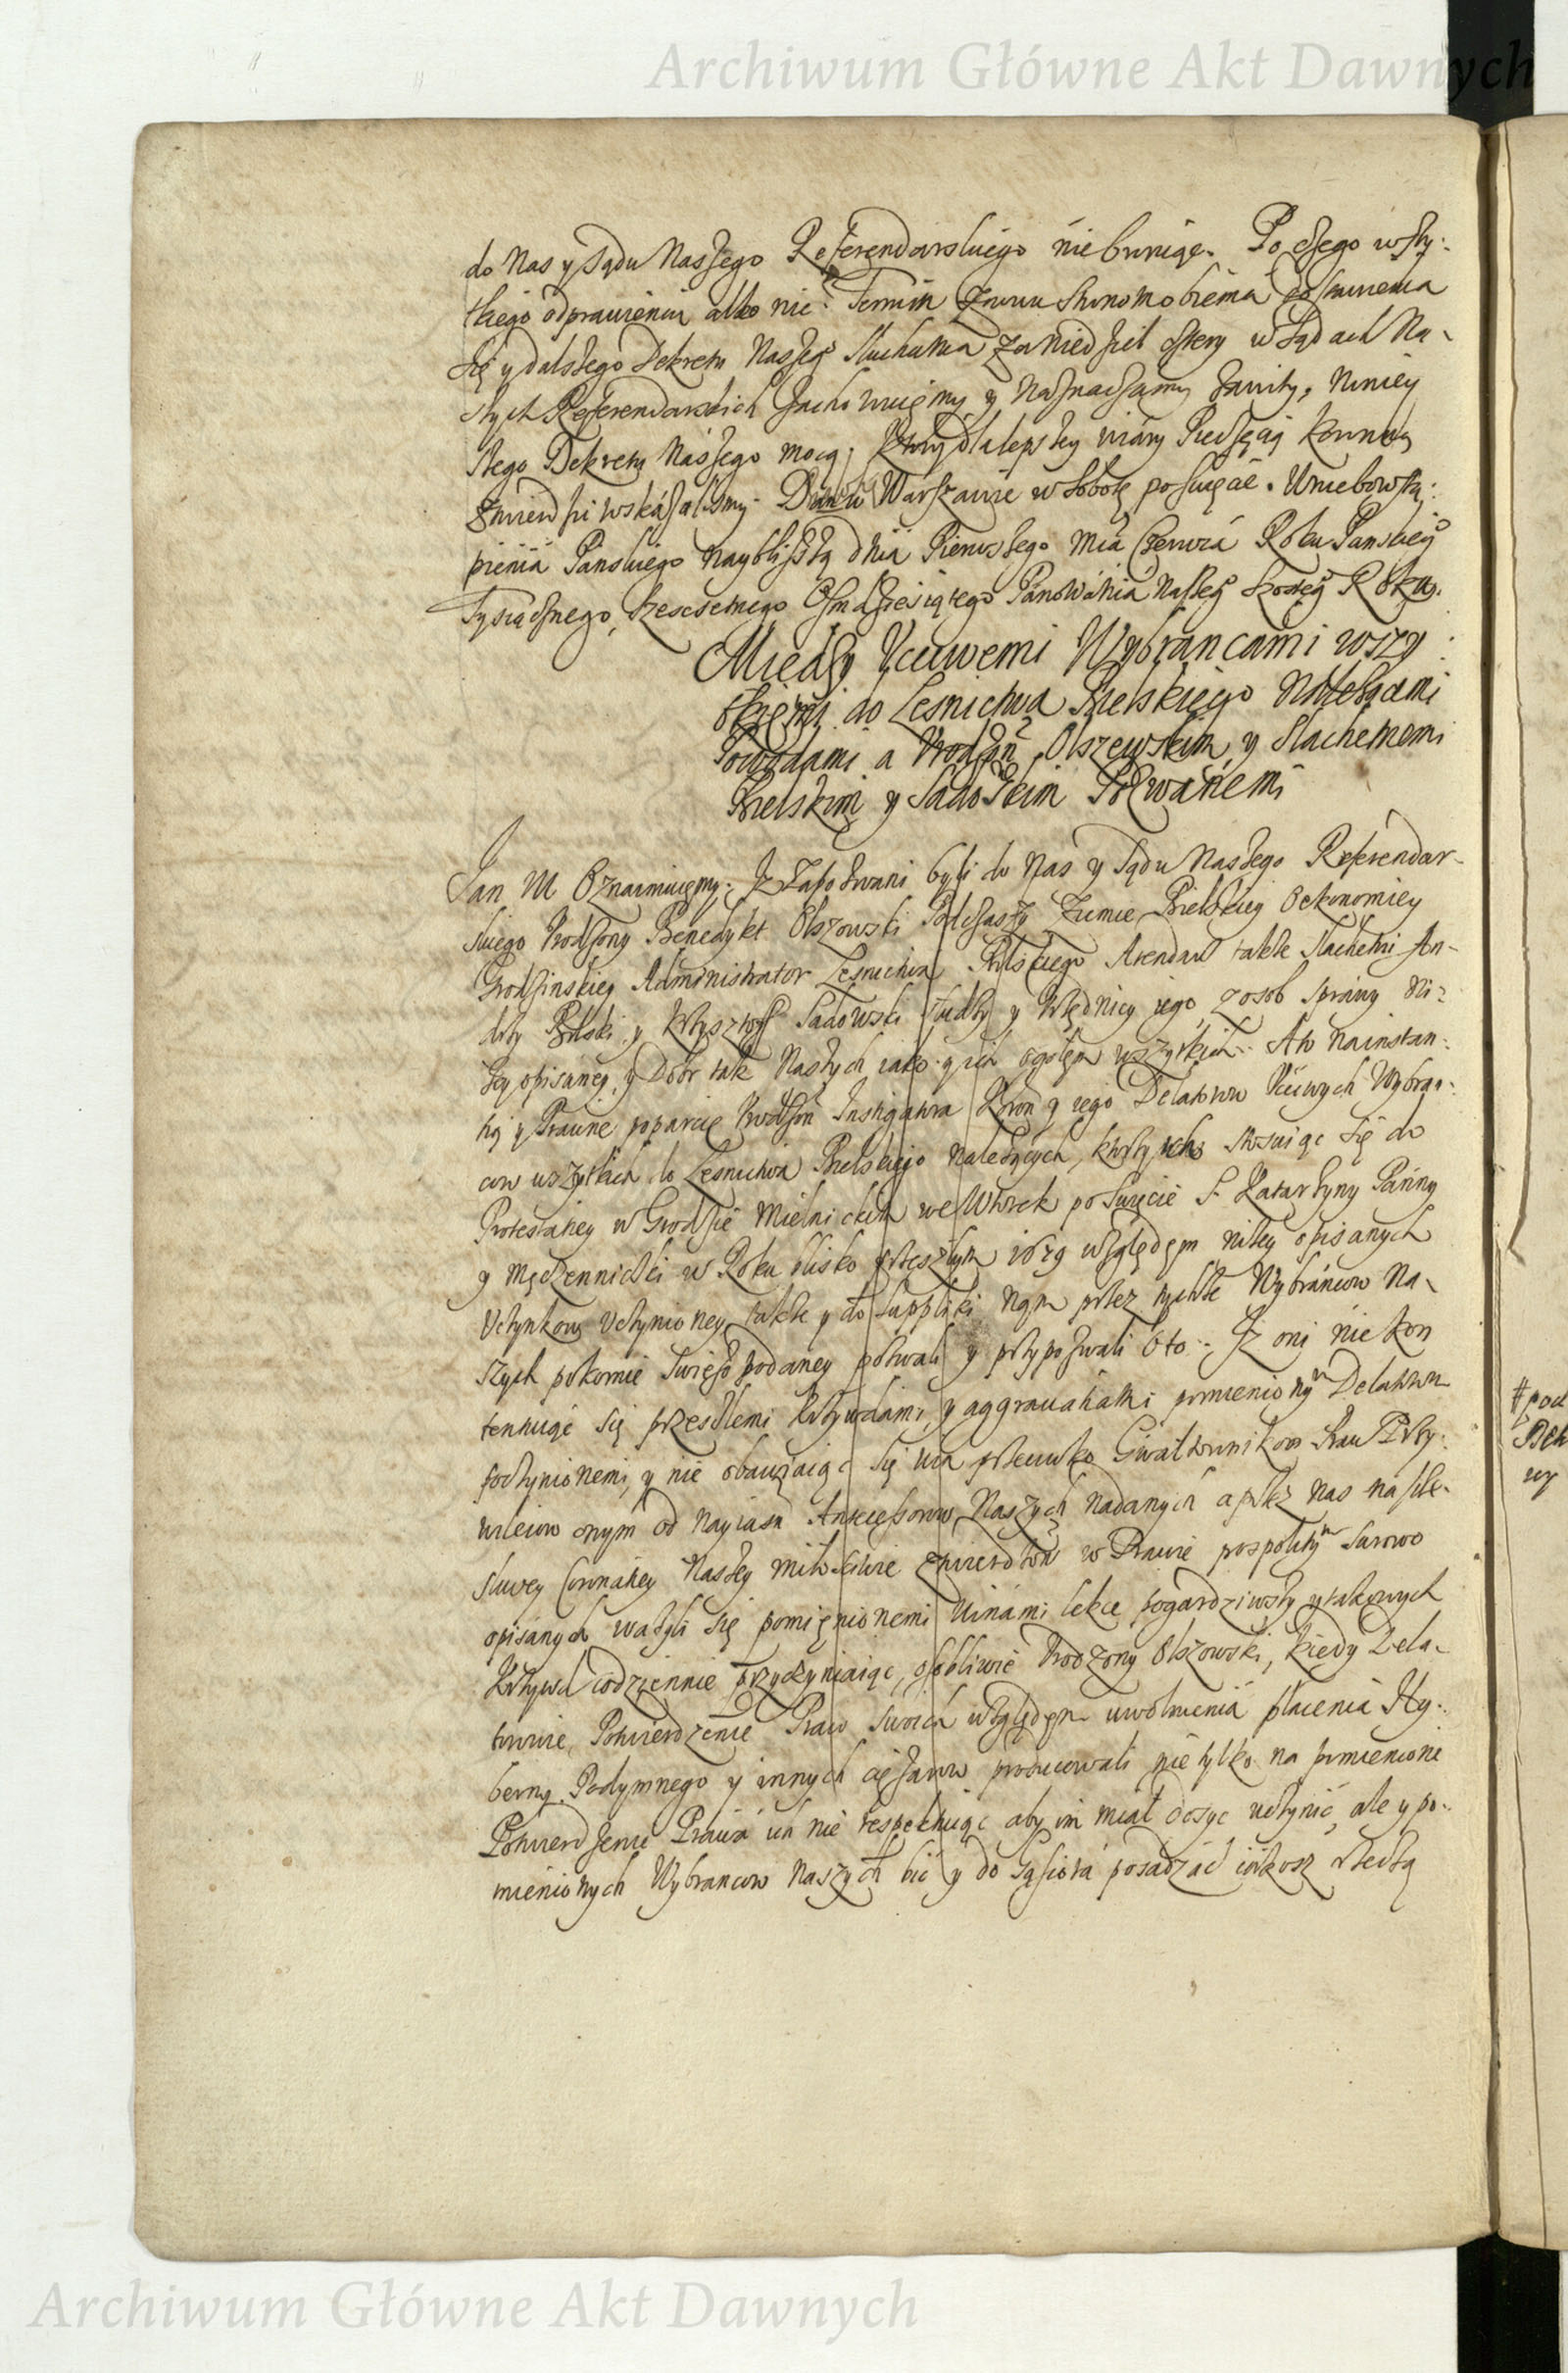 Archiwum Główne Akt Dawnych
do Nas y Sądu Naszego Referendarskiego nie bronięc. Po czego wszy:
tkiego odprawieniu albo nie: Termin znowu Stronom obiema do stawienia
się y dalszego Dekretu Naszeg° słuchania za Niedziel cztery w Sądach Na-
szych Referendarskich zachowuięmy y Naznaczamy zawity, Niniey
szego Dekretu Naszego mocą, Ktory dla lepszey wiary Pieczęcią Koronną
Stwierdzić wskazalismy. Dan w Warszawie w Sobotę po Święcie Wniebowstą:
pienia Panskiego Nayblizszą dnia Pierwszego Mca Czerwca Roku Panskieg°
Tysiącznego, Szescsetnego Osmdziesiątego Panowania Naszeg° Szosteg° Roku.
Między Vcciwemi Wybrancami wszy:
stkiemi do Lesnictwa Bielskiego Należącemi
Powodami a Vrodzon Olszewskim y Slachetnemi
Bielskim y Sadowskim Pozwanemi
Jan III Oznaimuięmy. Iz Zapozwani byli do Nas y Sądu Naszego Referendar-
skiego Vrodzony Benedykt Olszowski Podczaszy Ziemie Bielskiey Oekonomiey
Grodzinskiey Administrator Lesnictwa Bielskiego Arendarz także Slachetni An-
drzy Bilski y Krzysztoff Sadowski słudzy y Vrzędnicy iego z osob sprawy ni:
zey opisaney y Dobr tak Naszych iako y ich ogołem wszytkich. A to na instan:
cią y Prawne poparcie Vrodzon Instigatora Koron y iego Delatorow Vcciwych Wybran:
cow wszytkich do Lesnictwa Bielskiego należących, ktorzy stosuiąc się do
Protestatiey w Grodzie Mielnickim we Wtorek po Swięcie S. Katarzyny Panny
y Męczenniczki w Roku blisko przeszłym 1679 względem niżey opisanych
Vczynkow Vczynioney, także y do Suppliki Nam przez tychże Wybrancow Na-
szych pokornie Swiężo podaney pozwali y przypozwali o to. Iz oni nie kon
tentuiąc się przeszłemi krzywdami, y aggrawatiami pomienionym Delatorom
poczynionemi, y nie obawiaiąc się win przeciwko Gwałtownikom Praw Przy:
wileiow onym od Nayiasn Antecessorow Naszych nadanych a przez nas na szcze-
sliwey Coronatiey Naszey miłosciwie ztwierdzon w Prawie pospolitym Surowo
opisanych ważyli się pomięnionemi winami lekce pogardziwszy y takowych
Krzywd codziennie przyczyniaiąc, osobliwie Vrodzony Olszowski, kiedy Dela-
torowie Potwierdzenie Praw Swoich względem uwolnienia płacenia Hy:
berny Podymnego y innych ciężarow prosicowali nie tylko na pomienione
Potwierdzenie Prawa ich nie respektuiąc aby im miał dosyc uczynić, ale y po-
mienionych Wybrancow Naszych bić y do Gąsiora posadzać
Archiwum Główne Akt Dawnych